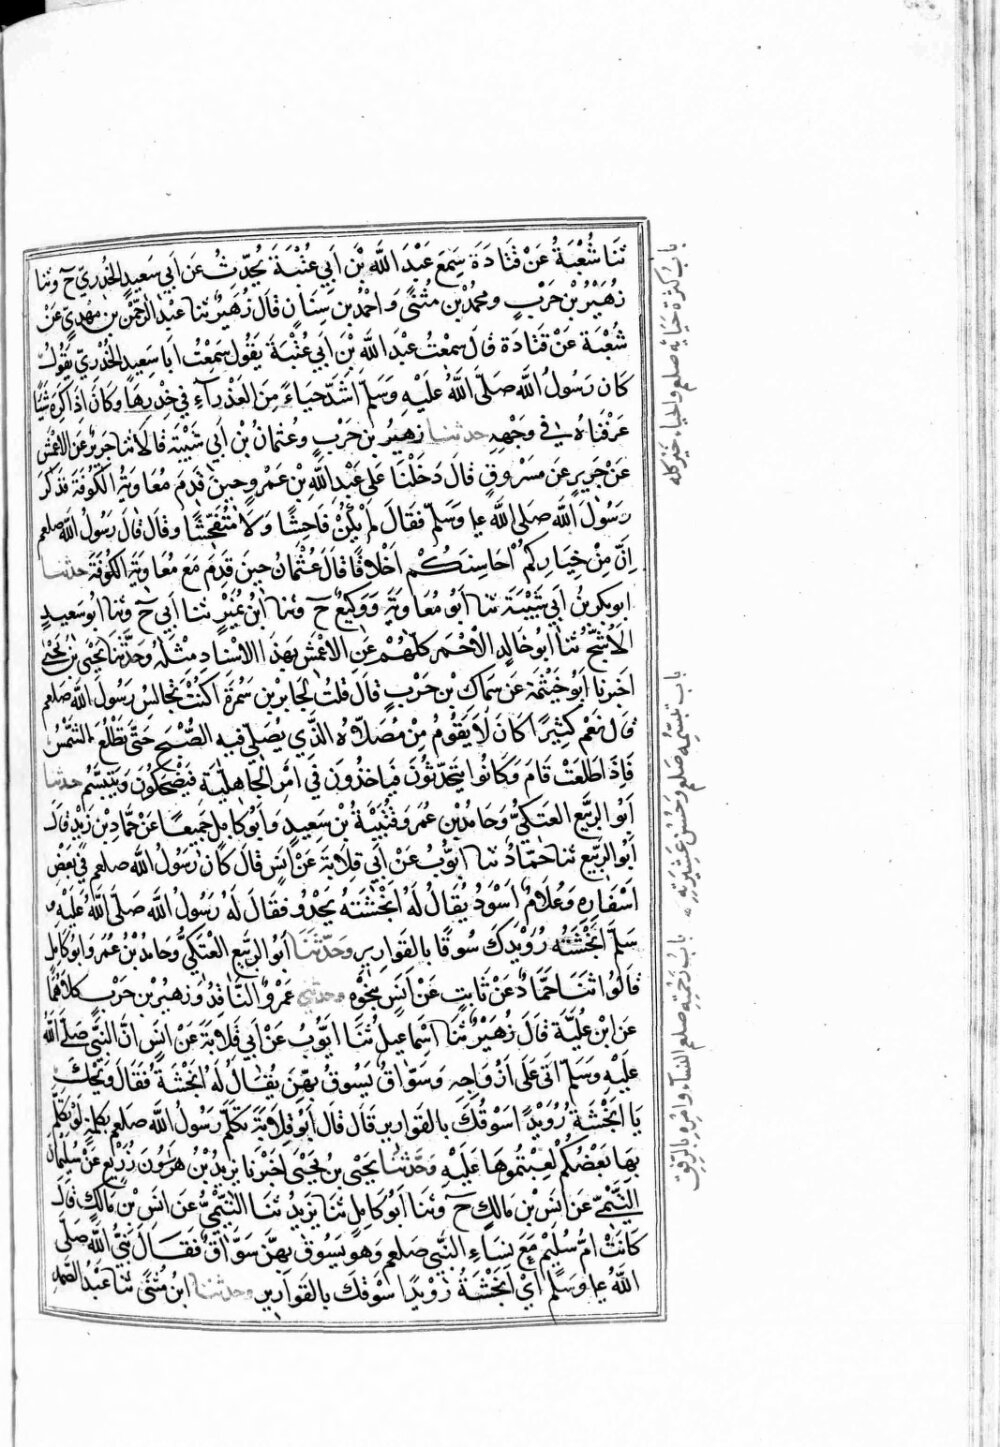 ثَنَا شُعْبَةُ عَنْ قَتَادَةَ سَمِعَ عَبْدَ اللَّهِ بْنَ أَبِي عُتْبَةَ يُحَدِّثُ عَنْ أَبِي سَعِيدٍ الْخُدْرِيِّ ح وثنا
زُهَيْرُ بْنُ حَرْبٍ ومحمد بْنُ مُثَنَّى وَاحْمَدُ بْنُ سِنَانٍ قَالَ زُهَيْرٌ ثنا عَبْدُ الرَّحْمَنِ بْنُ مَهْدِيٍّ عَنْ
شُعْبَةَ عَنْ قَتَادَةَ قَالَ سَمِعْتُ عَبْدَ اللَّهِ بْنَ أَبِي عُتْبَةَ يَقُولُ سَمِعْتُ ابَا سَعِيدٍ الْخُدْرِيَّ يَقُولُ
كَانَ رَسُولُ اللَّهِ صَلَّى اللَّهُ عَلَيْهِ وَسَلَّمَ اشَدَّ حَيَاءً مِنَ الْعَذْرَاءِ فِي خِدْرِهَا وَكَانَ إِذَا كَرِهَ شَيْئًا
عَرَفْنَاهُ فِي وَجْهِهِ حدثنا زُهَيْرُ بْنُ حَرْبٍ وعُثْمَانُ بْنُ أَبِي شَيْبَةَ قَالَا ثنا جَرِيرٌ عَنِ الْاعْمَشِ
عَنْ جَرِيرٍ عَنْ مَسْرُوقٍ قَالَ دَخَلْنَا عَلَى عَبْدِ اللَّهِ بْنِ عَمْرٍو حِينَ قَدِمَ مُعَاوِيَةُ الْكُوفَةَ فَذَكَرَ
رَسُولَ اللَّهِ صَلَى اللَّه عليه وَسَلَّمَ فَقَالَ لَمْ يَكُنْ فَاحِشًا وَلَا مُتَفَحِّشًا وقَالَ قَالَ رَسُولُ اللَّه صلعم
إِنَّ مِنْ خِيَارِكُمْ احَاسِنَكُمْ اخْلَاقًا قَالَ عُثْمَانُ حِينَ قَدِمَ مَعَ مُعَاوِيَةَ الْكُوفَةَ حدثنا
ابوبكر بْنُ أَبِي شَيْبَةَ ثنا أَبُو مُعَاوِيَةَ وَوَكِيعٌ ح وثنا ابْنُ نُمَيْرٍ ثنا أَبِي ح وثنا ابُو سَعِيدٍ
الْأَشَجُّ ثنا ابُو خَالِدٍ الْأَحْمَر كُلُّهُمْ عَنِ الْاعْمَشِ بِهَذَا الاسْنَادِ مِثْلَهُ وحَدَّثَنَا يَحْيَى بْنُ يَحْيَى
اخبرنا أَبُو خَيْثَمَةَ عَنْ سِمَاكِ بْنِ حَرْبٍ قَالَ قُلْتُ لِجَابِرِ بْنِ سَمُرَةَ اكُنْتَ تُجَالِسُ رَسُولَ اللَّه صلعم
قَالَ نَعَمْ كَثِيرًا كَانَ لَا يَقُومُ مِنْ مُصَلَّاهُ الَّذِي يُصَلِّي فِيهِ الصُّبْحَ حَتَّى تَطْلُعَ الشَّمْسُ
فَإِذَا طَلَعَتْ قَامَ وَكَانُوا يَتَحَدَّثُونَ فَيَاخُذُونَ فِي امْرِ الْجَاهِلِيَّةِ فَيَضْحَكُونَ وَيَتَبَسَّمُ حدثنا
أَبُو الرَّبِيعِ الْعَتَكِيُّ وحَامِدُ بْنُ عُمَرَ وقُتَيْبَةُ بْنُ سَعِيدٍ وَأَبُو كَامِلٍ جَمِيعًا عَنْ حَمَّادِ بْنِ زَيْدٍ قَالَ
أَبُو الرَّبِيعِ ثنا حَمَّادٌ ثنا ايُّوبُ عَنْ أَبِي قِلَابَةَ عَنْ انَسٍ قَالَ كَانَ رَسُولُ اللَّه صلعم فِي بَعْضِ
اسْفَارِهِ وَغُلَامٌ اسْوَدُ يُقَالُ لَهُ انْجَشَةُ يَحْدُو فَقَالَ لَهُ رَسُولُ اللَّهِ صَلَّى اللَّهُ عَلَيْهِ و
سَلَّمَ انْجَشَةُ رُوَيْدَكَ سُوقًا بِالقَوَارِيرِ وحَدَّثَنَا أَبُو الرَّبِيعِ الْعَتَكِيُّ وحَامِدُ بْنُ عُمَرَ وَابُو كَامِلٍ
قَالُوا ثَنَا حَمَّادٌ عَنْ ثَابِتٍ عَنْ انَسٍ بِنَحْوِهِ وحدثني عَمْرٌو النَّاقِدُ وزُهَيْرُ بْنُ حَرْبٍ كِلَاهُمَا
عَنِ ابْنِ عُلَيَّةَ قَالَ زُهَيْرٌ ثَنَا اسْمَاعِيلُ ثَنَا ايُّوبُ عَنْ أَبِي قِلَابَةَ عَنْ انَسٍ انَّ النَّبِيَّ صَلَّى اللَّهُ
عَلَيْهِ وسَلَّمَ اتَى عَلَى أَزْوَاجِهِ وَسَوَّاقٌ يَسُوقُ بِهِنَّ يُقَالُ لَهُ انْجَشَةُ فَقَالَ وَيْحَكَ
يَا انْجَشَةُ رُوَيْدًا سَوْقَكَ بِالقَوَارِيرِ قَالَ قَالَ ابُو قِلَابَةَ تَكَلَّمَ رَسُولُ اللَّه صلعم بِكَلِمَةٍ لَوْ تَكَلَّمَ
بِهَا بَعْضُكُمْ لَعِبْتُمُوهَا عَلَيْهِ وحَدَّثَنَا يَحْيَى بْنُ يَحْيَى اخْبَرَنَا يَزِيدُ بْنُ زُرَيْعٍ عَنْ سُلَيْمَانَ
التَّيْمِيِّ عَنْ انَسِ بْنِ مَالِكٍ ح وثَنَا أَبُو كَامِلٍ ثَنَا يَزِيدُ ثَنَا التَّيْمِيُّ عَنْ انَسِ بْنِ مَالِكٍ قَالَ
كَانَتْ امُّ سُلَيْمٍ مَعَ نِسَاءِ النَّبِيِّ صلعم وَهُوَ يَسُوقُ بِهِنَّ سَوَّاقٌ فَقَالَ نَبِيُّ اللَّهِ صَلَّى
اللَّهُ عليه وسَلَّمَ أَيْ انْجَشَةُ رُوَيْدًا سَوْقَكَ بِالقَوَارِيرِ وحدثنا ابْنُ مُثَنَّى ثَنَا عَبْدُ الصَّمَدِ
باب كثرة حيائه صلعم والحياء خير كله
باب تبسمه صلعم وحسن عشيرته
باب رحمته صلعم النساء وامره بالرفق